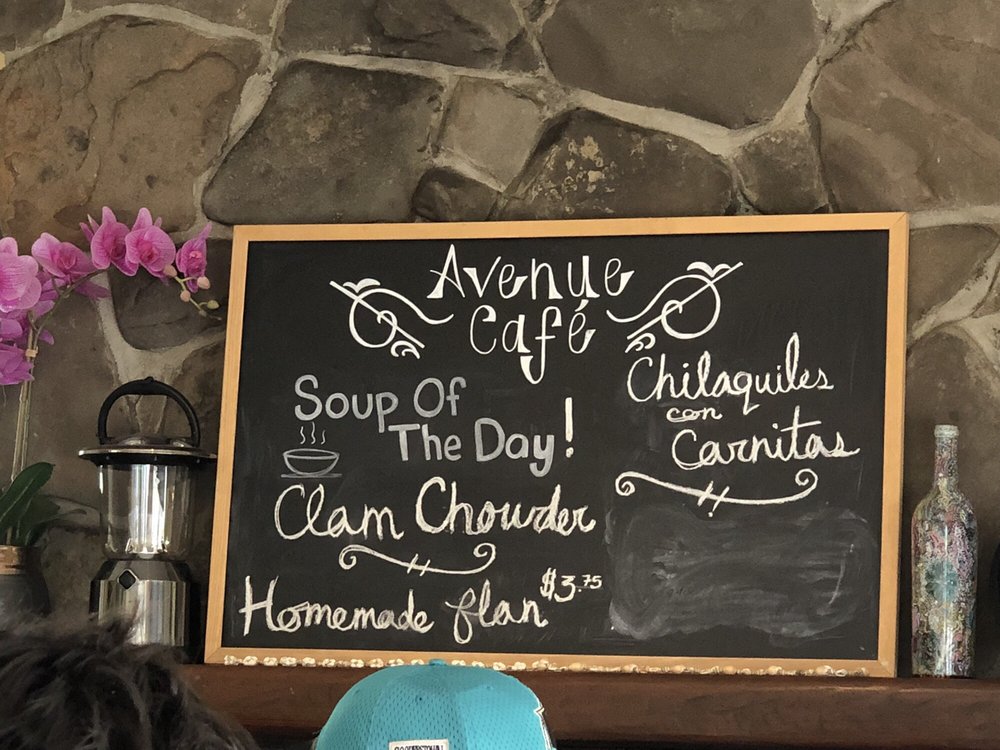 Avenue
Café
Soup Of
The Day!
Clam Chowder
Homemade flan $3.75
Chilaquiles
con
Carnitas